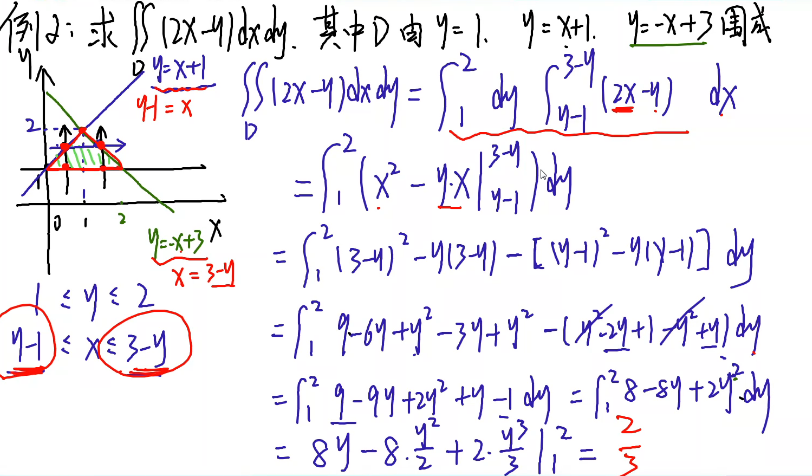 例12: 求 ∬(2x-y)dxdy. 其中D由 y=1. y=x+1. y=-x+3 围成
D
y
y=x+1
y-1=x
2
0 1 2 x
y=-x+3
x=3-y
1 ≤ y ≤ 2
y-1 ≤ x ≤ 3-y
∬_D (2x-y)dxdy = ∫_1^2 dy ∫_{y-1}^{3-y} (2x-y) dx
= ∫_1^2 (x² - y·x |_{y-1}^{3-y}) dy
= ∫_1^2 (3-y)² - y(3-y) - [(y-1)² - y(y-1)] dy
= ∫_1^2 9-6y+y² -3y+y² -(y²-2y+1-y²+y) dy
= ∫_1^2 9-9y+2y²+y-1 dy = ∫_1^2 8-8y+2y² dy
= 8y - 8·y²/2 + 2·y³/3 |_1^2 = 2/3